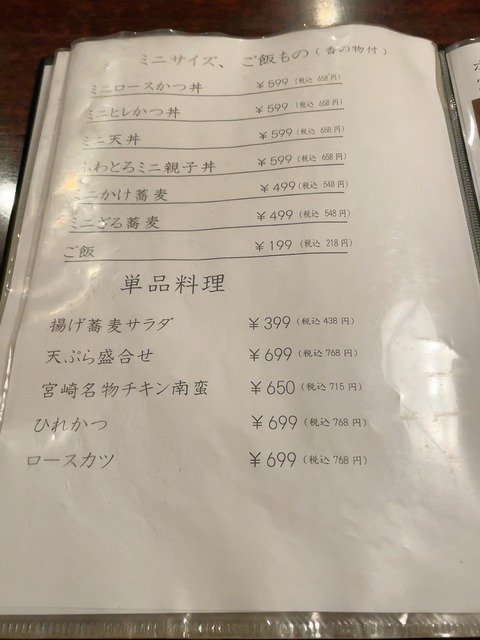 ミニサイズ、ご飯もの(香の物付)
ミニロースかつ丼 ¥599(税込 658円)
ミニヒレかつ丼 ¥599(税込 658円)
ミニ天丼 ¥599(税込 658円)
ふわとろミニ親子丼 ¥599(税込 658円)
ミニかけ蕎麦 ¥499(税込 548円)
ミニざる蕎麦 ¥499(税込 548円)
ご飯 ¥199(税込 218円)
単品料理
揚げ蕎麦サラダ ¥399(税込438円)
天ぷら盛合せ ¥699(税込768円)
宮崎名物チキン南蛮 ¥650(税込715円)
ひれかつ ¥699(税込768円)
ロースカツ ¥699(税込768円)